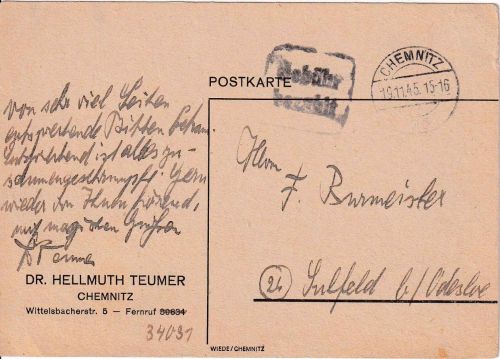 von sehr viel Seiten
entsprechende Bitten bekam.
Entsprechend ist alles zu-
sammengeschrumpft. Gern
wieder von Ihnen hörend,
mit magischen Grüßen
Teumer
DR. HELLMUTH TEUMER
CHEMNITZ
Wittelsbacherstr. 5 — Fernruf 30634
34031
POSTKARTE
Gebühr
bezahlt
CHEMNITZ
19.11.45.15-16
Herrn
F. Burmeister
(24) Sülfeld b/ Oldesloe
WIEDE/CHEMNITZ